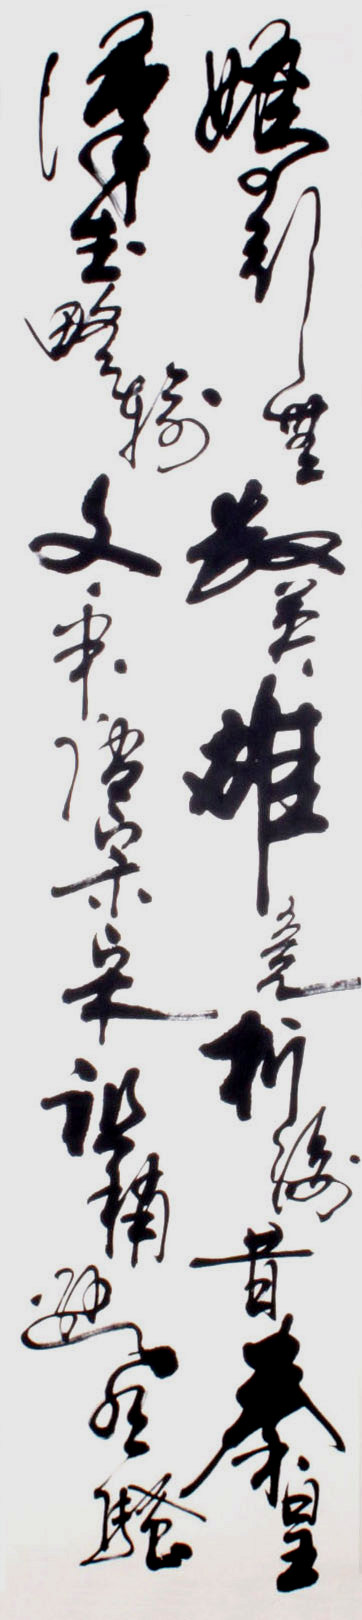 嬌引無數英雄竞折腰昔秦皇
漢武略輸文采唐宗宋祖稍遜風騷